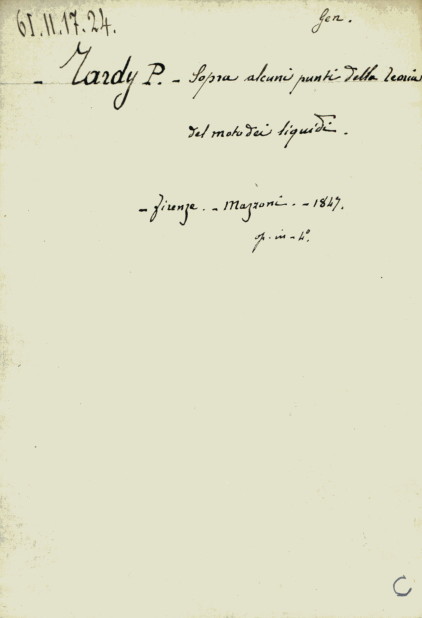 61.11.17.24.
Gen.
- Tardy P. - Sopra alcuni punti della Teoria
del moto dei liquidi.
- Firenze. - Mazzoni. - 1847.
op. in - 4°.
C